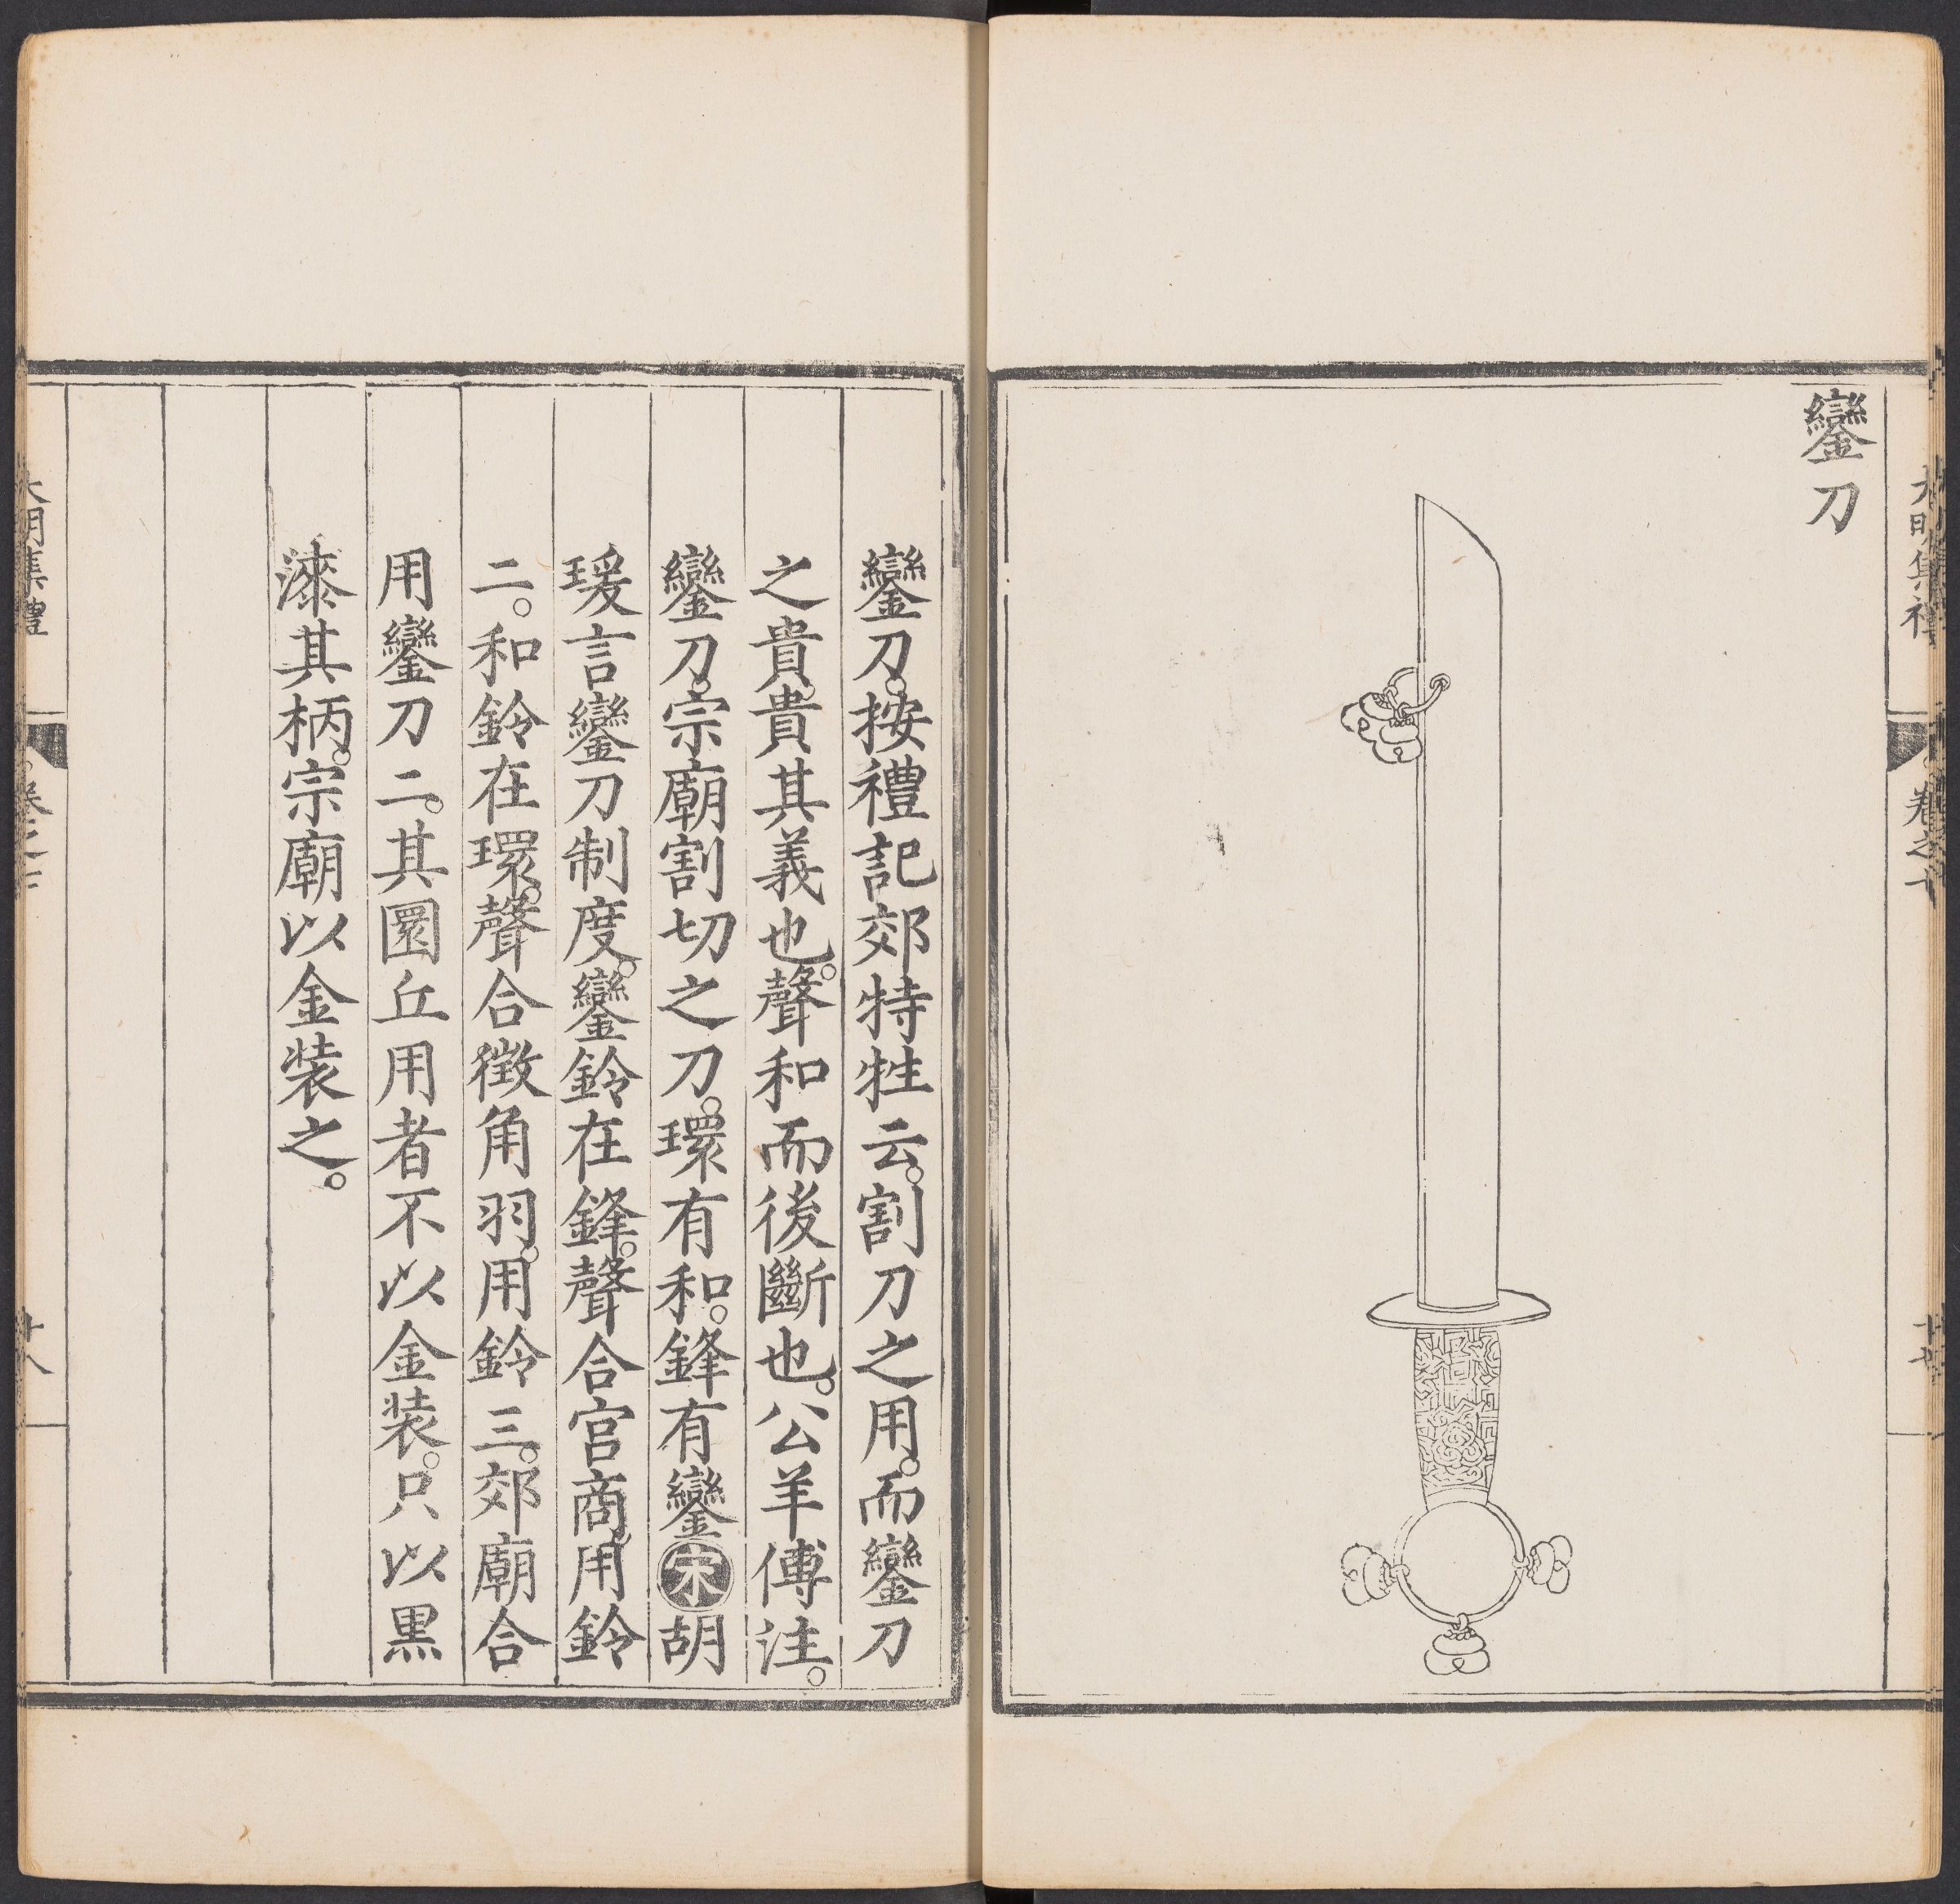 大明集禮
卷之十
鑾刀
鑾刀。按禮記郊特牲云。割刀之用。而鑾刀
之貴。貴其義也。聲和而後斷也。公羊傳注。
鑾刀。宗廟割切之刀。環有和。鋒有鑾宋胡
瑗言鑾刀制度。鑾鈴在鋒。聲合宫商。用鈴
二。和鈴在環。聲合徴角羽。用鈴三。郊廟合
用鑾刀二。其圜丘用者不以金装。只以黒
漆其柄。宗廟以金装之。
大明集禮
卷之十
十八